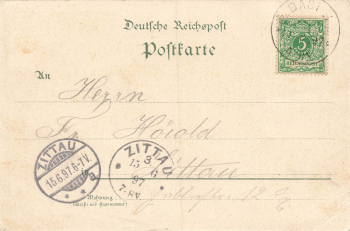 Deutsche Reichspost
Postkarte
An
Herrn
Fr. Hörold
Zittau
Wohnung
(Straße und Hausnummer)
5
REICHSPOST
ZITTAU
15.6.97.6-7.V.
a
ZITTAU
15 3/6
97
7-8V.